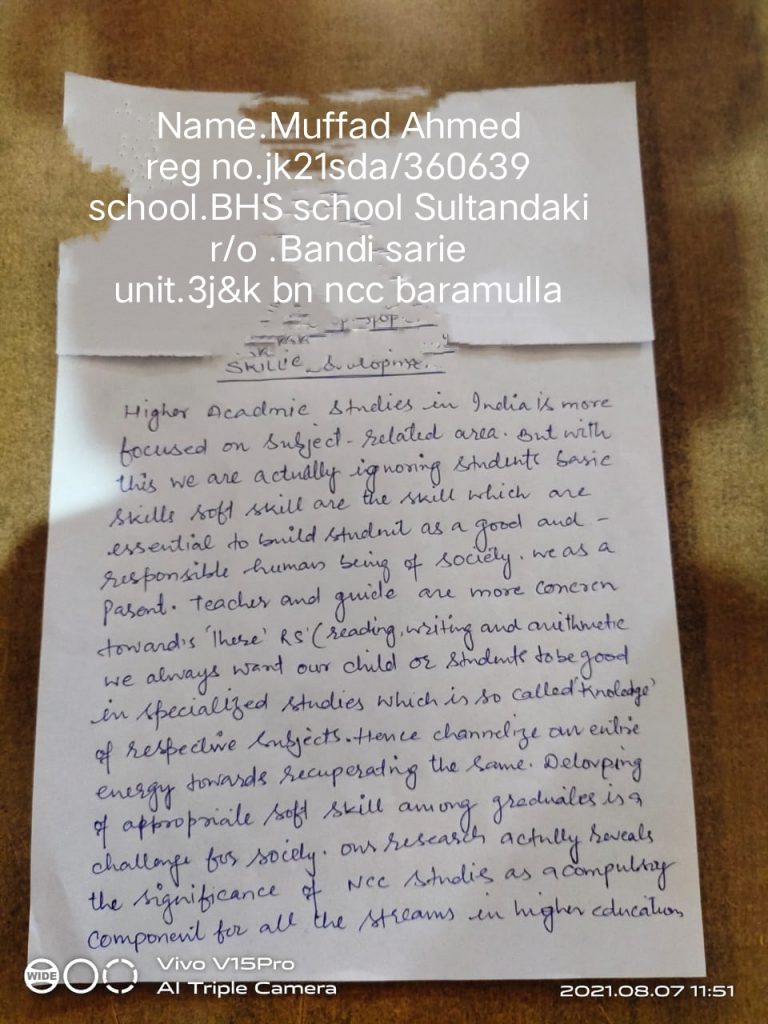 Name.Muffad Ahmed
reg no.jk21sda/360639
school.BHS school Sultandaki
r/o .Bandi sarie
unit.3j&k bn ncc baramulla
Higher Acadmic Studies in India is more
focused on Subject-related area. But with
this we are actually ignoring students basic
skills soft skill are the skill which are
essential to build student as a good and -
responsible human being of society. we as a
Parent. Teacher and guide are more concren
toward's 'There' RS' (reading, writing and arithmetic
we always want our child or students to be good
in specialized studies which is so called 'Knoledge'
of respective subjects. Hence channelize our entire
energy towards recuperating the same. Delovping
of appropriate soft skill among graduates is a
challenge for society. Our research actually reveals
the significance of NCC Studies as a compulsry
component for all the streams in higher education
WIDE
Vivo V15Pro
AI Triple Camera
2021.08.07 11:51